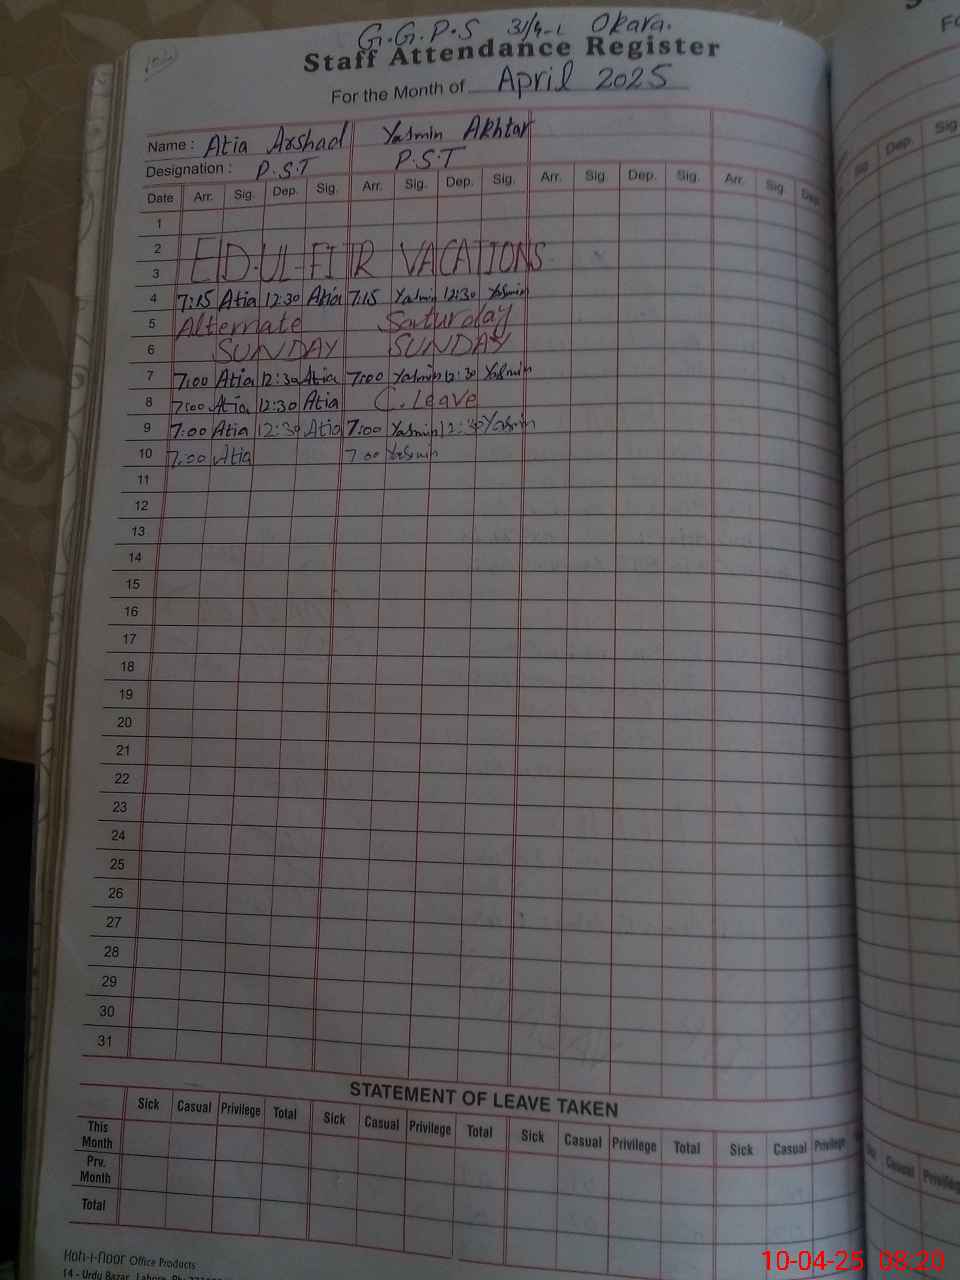 G.G.P.S 31/4-L Okara.
Staff Attendance Register
For the Month of April 2025
Name : Atia Arshad Yasmin Akhtar
Designation : P.S.T P.S.T
Date Arr. Sig. Dep. Sig. Arr. Sig. Dep. Sig. Arr. Sig Dep. Sig. Arr. Sig Dep.
1
2
EID-UL-FITR VACATIONS
3
4 7:15 Atia 12:30 Atia 7:15 Yasmin 12:30 Yasmin
5 Alternate Saturday
6 SUNDAY SUNDAY
7 7:00 Atia 12:30 Atia 7:00 Yasmin 12:30 Yasmin
8 7:00 Atia 12:30 Atia C. Leave
9 7:00 Atia 12:30 Atia 7:00 Yasmin 12:30 Yasmin
10 7:00 Atia 7:00 Yasmin
11
12
13
14
15
16
17
18
19
20
21
22
23
24
25
26
27
28
29
30
31
STATEMENT OF LEAVE TAKEN
Sick Casual Privilege Total Sick Casual Privilege Total Sick Casual Privilege Total Sick Casual Privilege
This Month
Prv. Month
Total
Koh-i-noor Office Products
14 - Urdu Bazar, Lahore.
Dep. Sig
Casual Privilege
10-04-25 08:20